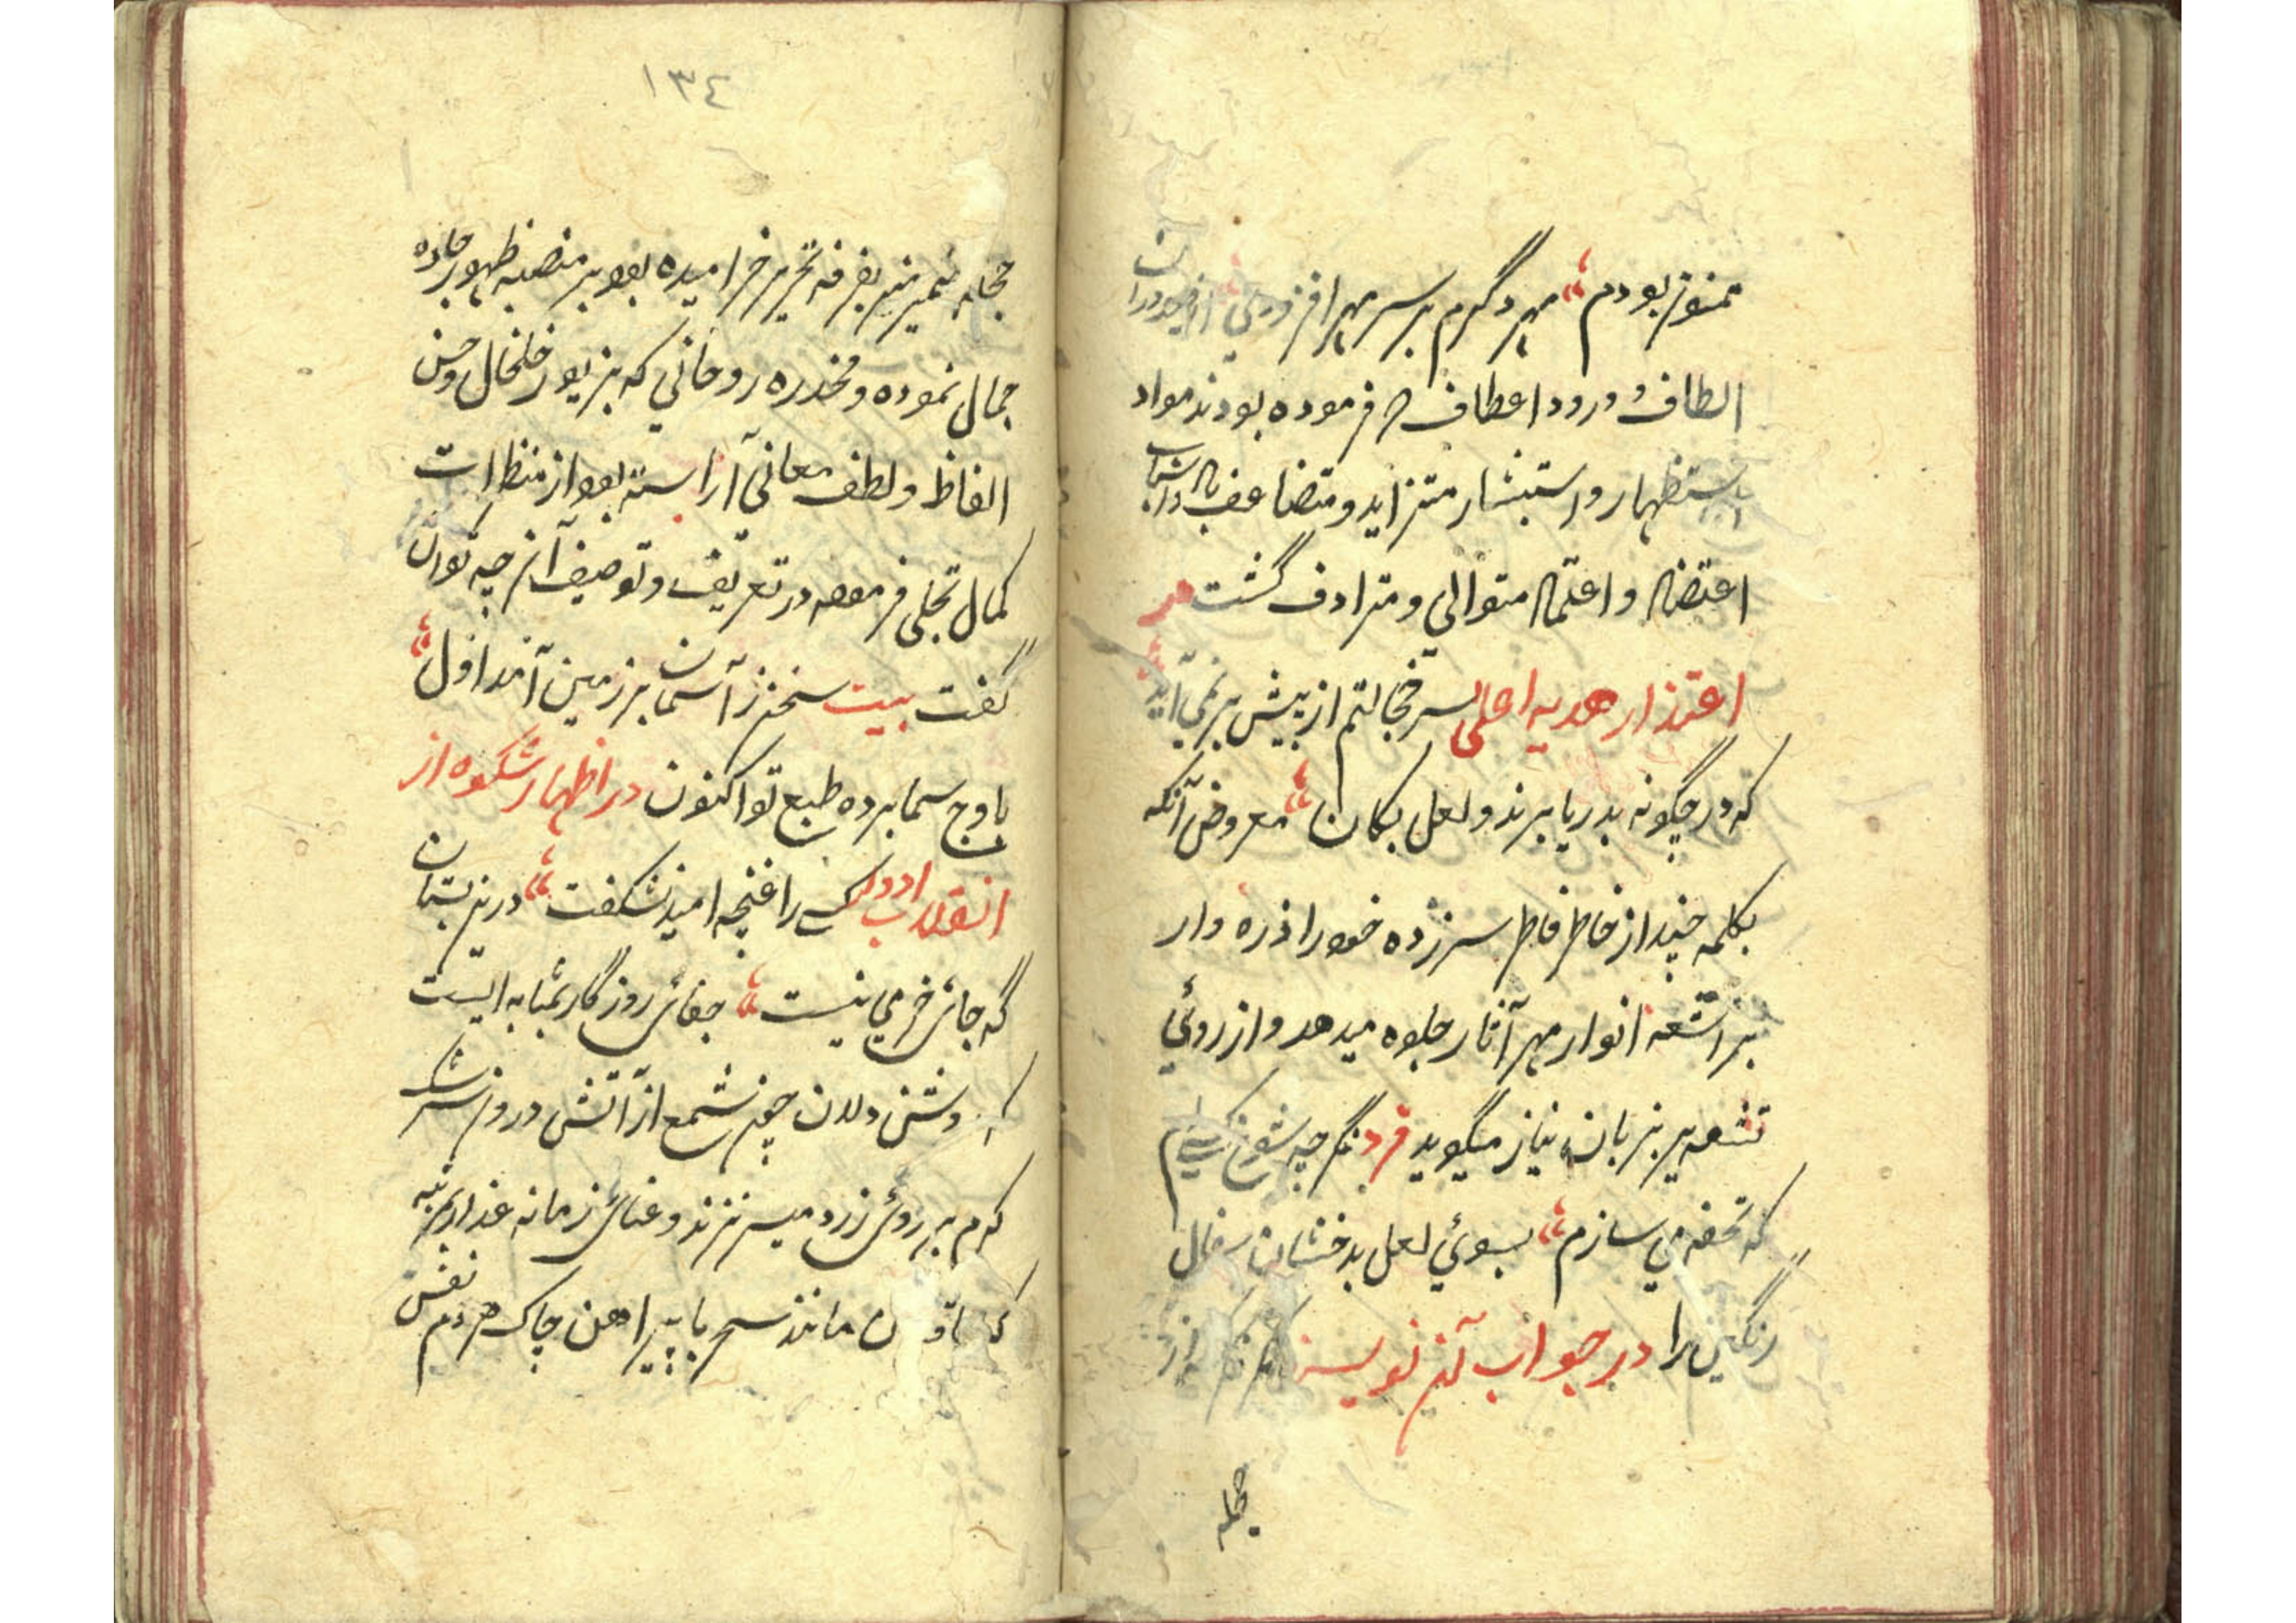 ممنون بودم مهر دگرم بر سر مهر افزودی از صدور آن
الطاف و ورود اعطاف که فرموده بودند مواد
استظهار و استبشار متزاید و متضاعف و اسباب
اعتضاد و اعتماد متوالی و مترادف گشت در
اعتذار هدیه اعلی سر خجالتم از پیش بر نمی آید
که در چگونه بدریا برند و لعل بکان معروض آنکه
بکلمه چند از خاطر فاطر سر زده خود را ذره وار
بر اشعه انوار مهر آثار جلوه میدهد و از روئی
بزبان نیاز میگوید فرد نگر چه شوخ
که تحفه می سازم بسوئی لعل بدخشان سفال
رنگین را در جواب آن نویسند
جمله
١٣٤
حجله ضمیر منیر بغرفه تحریر خرامیده بود بر منصبه ظهور جاوه
جمال نموده و مخدره روحانی که بزیور خلخال حسن
الفاظ و لطف معانی آراسته بود از منظر
کمال تجلی فرموده در تعریف و توصیف آن چه توان
گفت بیت سخن ز آسمان بر زمین آمد اول
باوج سما برده طبع تو اکنون در اظهار شکوه از
انقلاب ادوار کسی را غنچه امید نشکفت درین بستان
گه جائی خرمی نیست جفائی روزگار بمثابه ایست
که روشن دلان چون شمع از آتش درون سرشک
گرم بر روئی زرد میریزند و عنائی زمانه غدار بمرتبه
مانند سحر با پیراهن چاک هر دم نفس